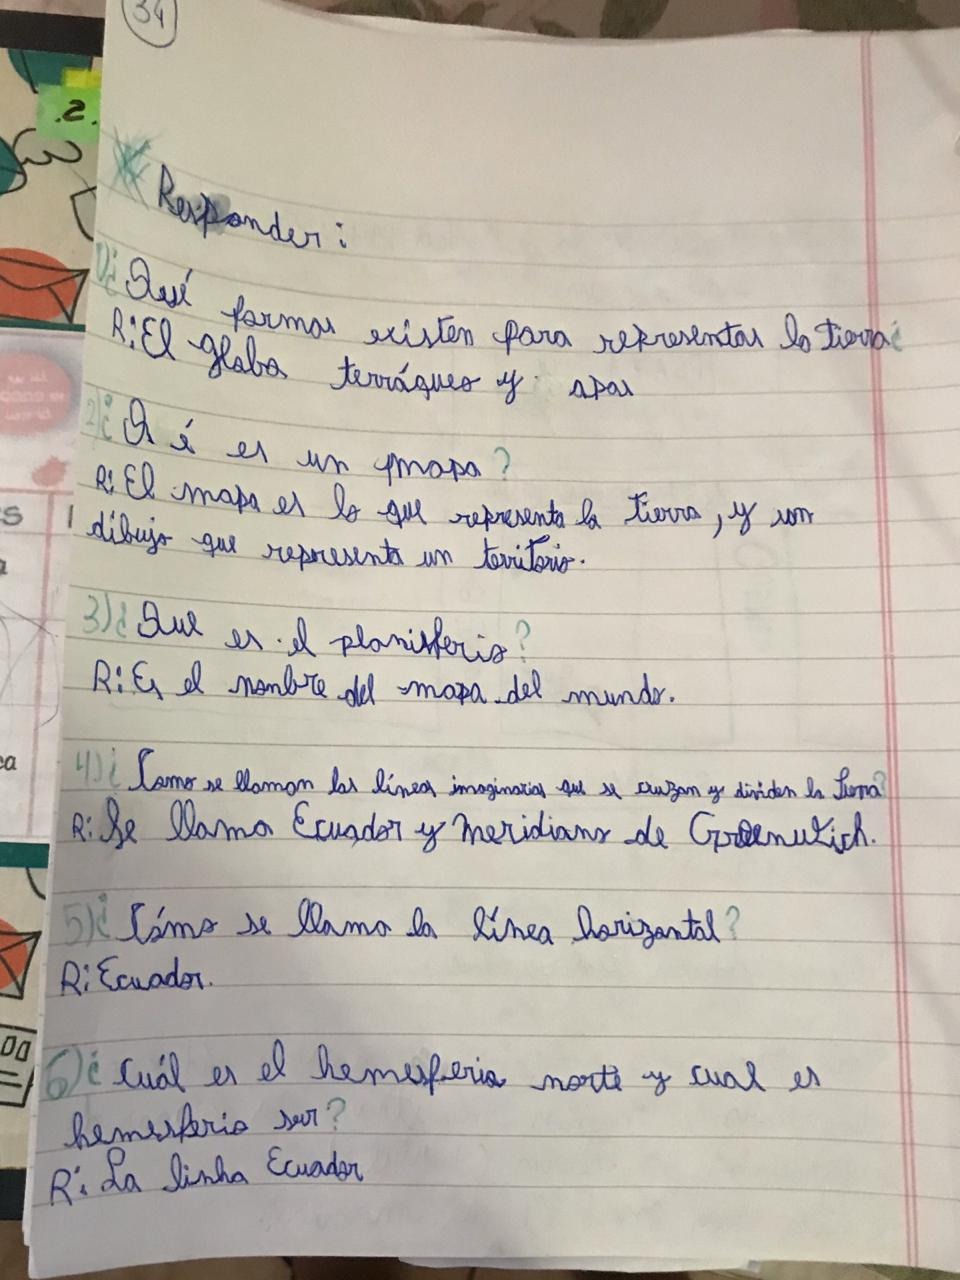 34
.2.
Responder:
1)¿Qué formas existen para representar la tierra¿
R:El globo terráqueo y apas
2)¿Q é es un mapa?
R:El mapa es lo que representa la tierra, y son
dibujo que representa un territorio.
3)¿Que es el planisferio?
R:Es el nombre del mapa del mundo.
4)¿Como se llaman las líneas imaginarias que se cruzan y dividen la tierra?
R:Se llama Ecuador y Meridiano de Greenwich.
5)¿Cómo se llama la línea horizontal?
R:Ecuador.
6)¿Cuál es el hemesferio norte y cual es
hemesferio sur?
R: La linha Ecuador